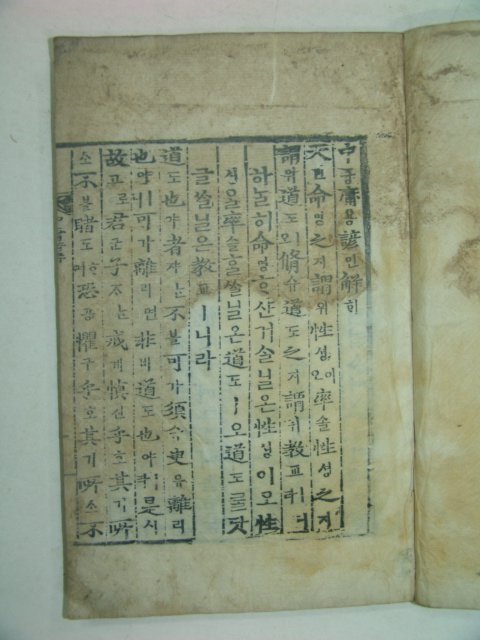 中듕庸용諺언解ᄒᆡ
天텬命명之지謂위性셩이오率솔性셩之지
謂위道도ㅣ오脩슈道도之지謂위教교ㅣ니
하ᄂᆞᆯ히命명ᄒᆞ샨거ᄉᆞᆯ닐온性셩이오性
셩을率솔ᄒᆞᆯᄉᆞᆯ닐온道도ㅣ오道도ᄅᆞᆯ닷
글ᄉᆞᆯ닐온教교ㅣ니라
道도也야者쟈ᄂᆞᆫ不블可가須슈臾유離리
也야ㅣ니可가離리면非비道도也야ㅣ라是시
故고로君군子ᄌᆞᄂᆞᆫ戒계愼신乎호其기所
소不블睹도ᄒᆞ며恐공懼구乎호其기所소不